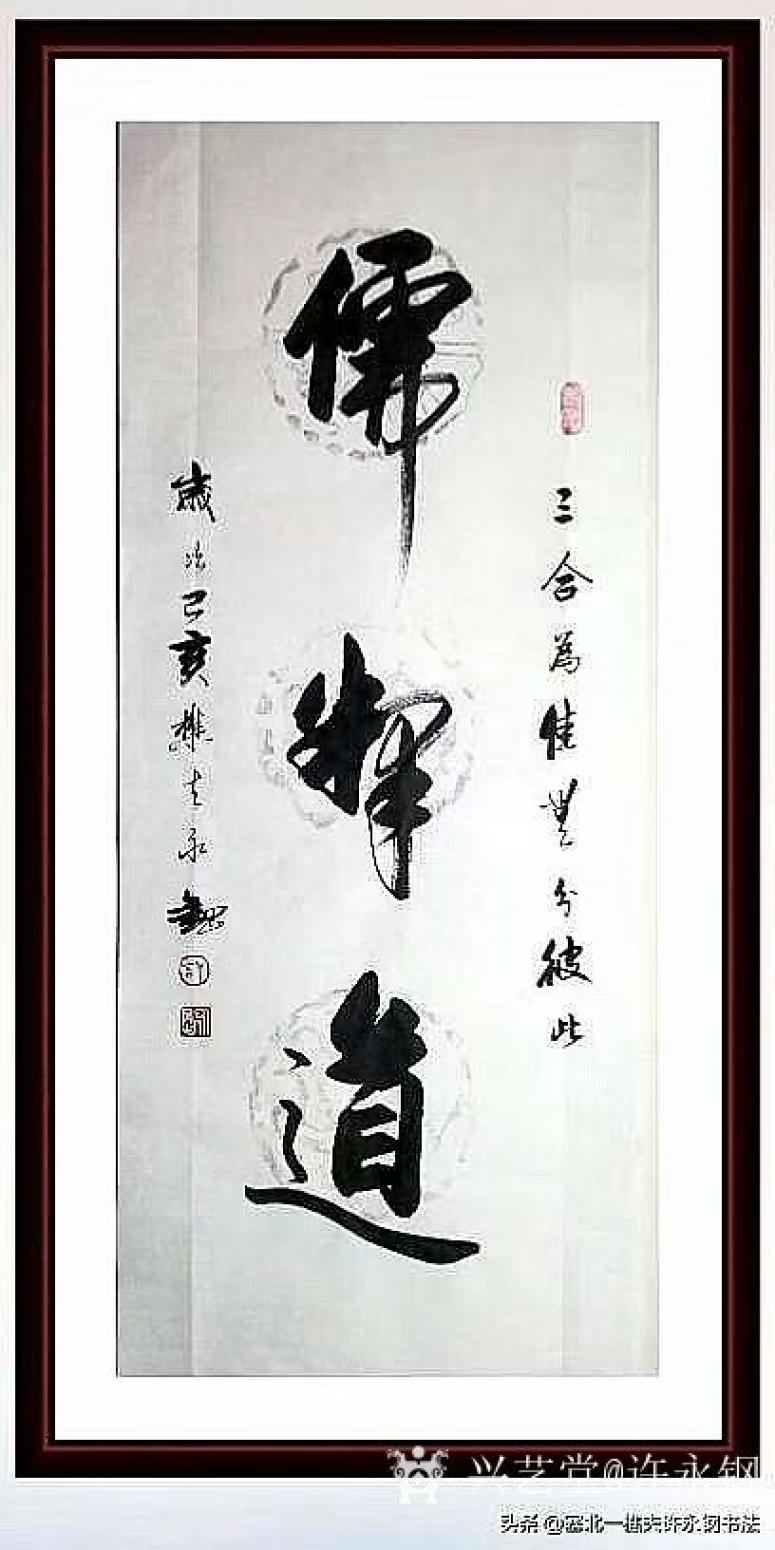 三合為佳豈分彼此
儒釋道
歲次己亥樵夫永鋼
许
兴艺堂@许永钢
头条 @塞北一樵夫许永钢书法